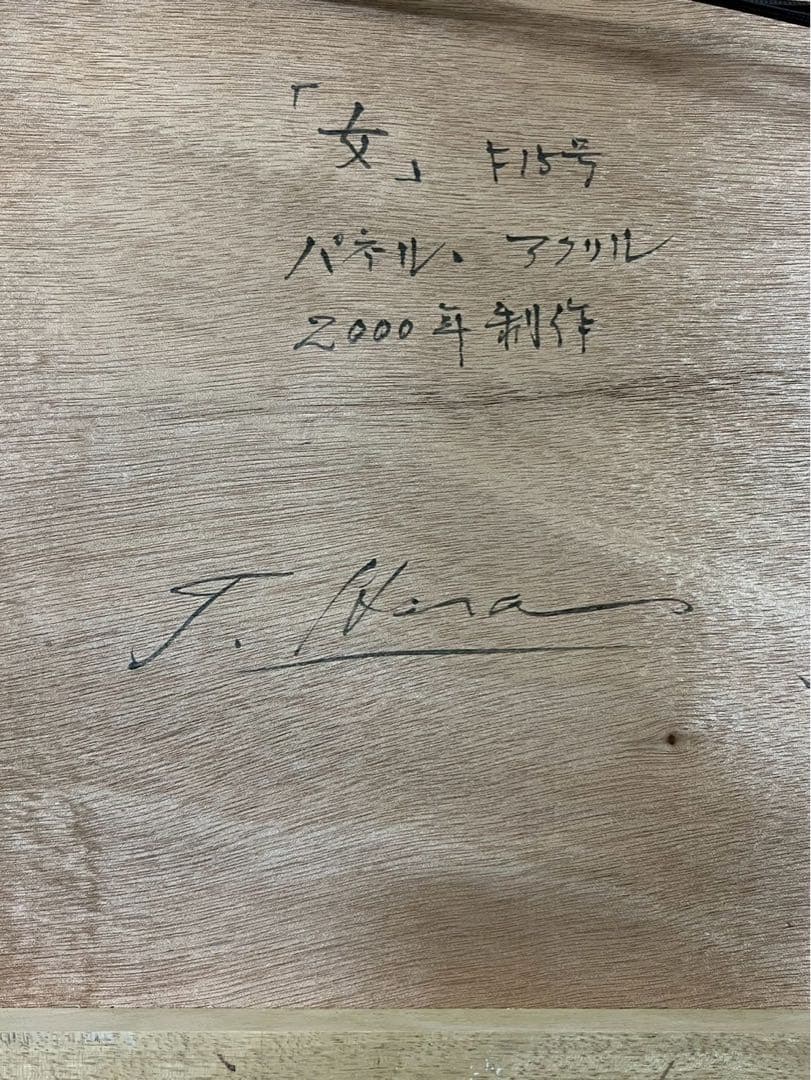 「女」 F15号
パネル、アクリル
2000年制作
T. Hara